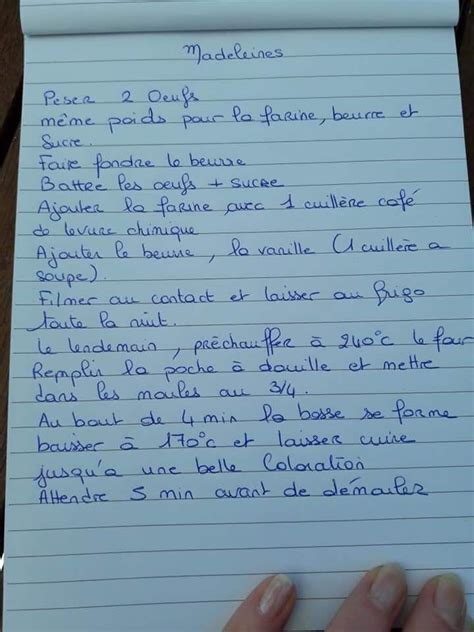 Madeleines
Peser 2 Oeufs
même poids pour la farine, beurre et
Sucre.
Faire fondre le beurre
Battre les oeufs + sucre
Ajouter la farine avec 1 cuillère café
de levure chimique
Ajouter le beurre, la vanille (1 cuillère a
soupe).
Filmer au contact et laisser au frigo
toute la nuit.
Le lendemain, préchauffer à 240°c le four
Remplir la poche à douille et mettre
dans les moules au 3/4.
Au bout de 4 min la bosse se forme
baisser à 170°c et laisser cuire
jusqu'a une belle Coloration
Attendre 5 min avant de démouler